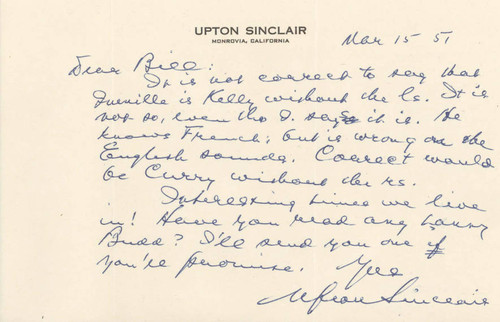 UPTON SINCLAIR
MONROVIA, CALIFORNIA
Mar 15 51
Dear Bill:
It is not correct to say that
is Kelly without the ls. It is
not so, even tho says it is. He
knows French, but is wrong on the
English sounds. Correct would
be Curry without the rs.
Interesting times we live
in! Have you read any Lanny
Budd? I'll send you one if
you'll promise. Yrs
Upton Sinclair